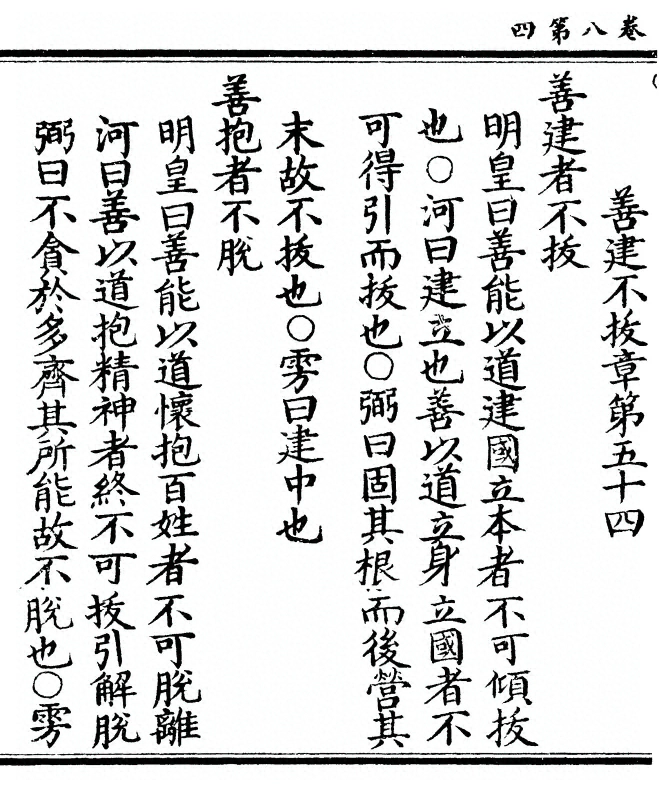 卷八第四
善建不拔章第五十四
善建者不拔
明皇曰善能以道建國立本者不可傾拔
也○河曰建立也善以道立身立國者不
可得引而拔也○弼曰固其根而後營其
末故不拔也○雱曰建中也
善抱者不脫
明皇曰善能以道懷抱百姓者不可脫離
河曰善以道抱精神者終不可拔引解脫
弼曰不貪於多齊其所能故不脫也○雱